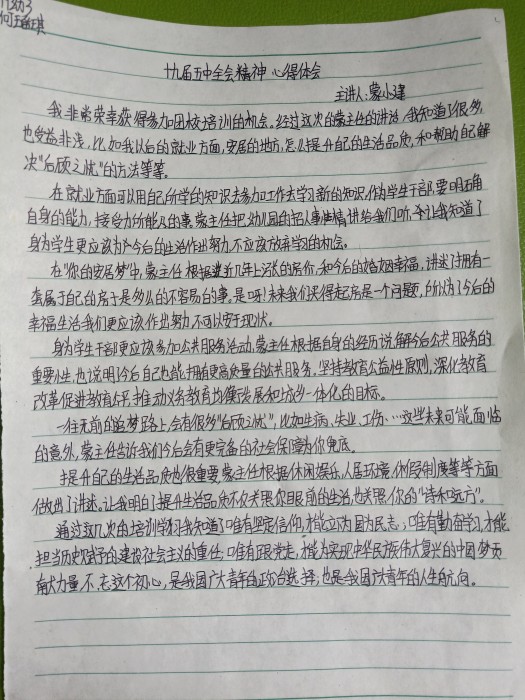 何瑶琪
十九届五中全会精神 心得体会
主讲人:蒙小建
我非常荣幸获得参加团校培训的机会。经过这次的蒙主任的讲话,我知道了很多,
也受益非浅,比如我以后的就业方面,安居的地方,怎么提升自己的生活品质,和帮助自己解
决“后顾之忧”的方法等等。
在就业方面可以用自己所学的知识去参加工作去学习新的知识,作为学生干部,要明确
自身的能力,接受力所能及的事,蒙主任把幼儿园的招人事情讲给我们听,令让我知道了
身为学生更应该为了今后的生活作出努力,不应该放弃学习的机会。
在“你的安居梦”中,蒙主任根据近几年上涨的房价,和今后的婚姻幸福,讲述了拥有一
套属于自己的房子是多么的不容易的事,是呀!未来我们买得起房是一个问题,所以为了今后的
幸福生活我们更应该作出努力,不可以安于现状。
身为学生干部更应该多参加公共服务活动,蒙主任根据自身的经历说,解今后公共服务的
重要性,也说明今后自己也能拥有更高质量的公共服务,坚持教育公益性原则,深化教育
改革促进教育公平,推动义务教育均衡发展和城乡一体化的目标。
一往无前的追梦路上,会有很多“后顾之忧”,比如生病、失业、工伤、…这些未来可能面临
的意外,蒙主任告诉我们今后会有更完备的社会保障为你兜底。
提升自己的生活品质也很重要,蒙主任根据休闲娱乐,人居环境,休假制度等等方面
做出了讲述,让我明白了提升生活品质不仅关照你眼前的生活,也关照你的“诗和远方”。
通过这几次的培训学习,我知道了唯有坚定信仰,才能立为国为民志,唯有勤奋学习,才能
担当历史赋予的建设社会主义的重任,唯有跟党走,才能为实现中华民族伟大复兴的中国梦贡
献力量,不忘这个初心,是我国广大青年的政治选择,也是我国广大青年的人生航向。